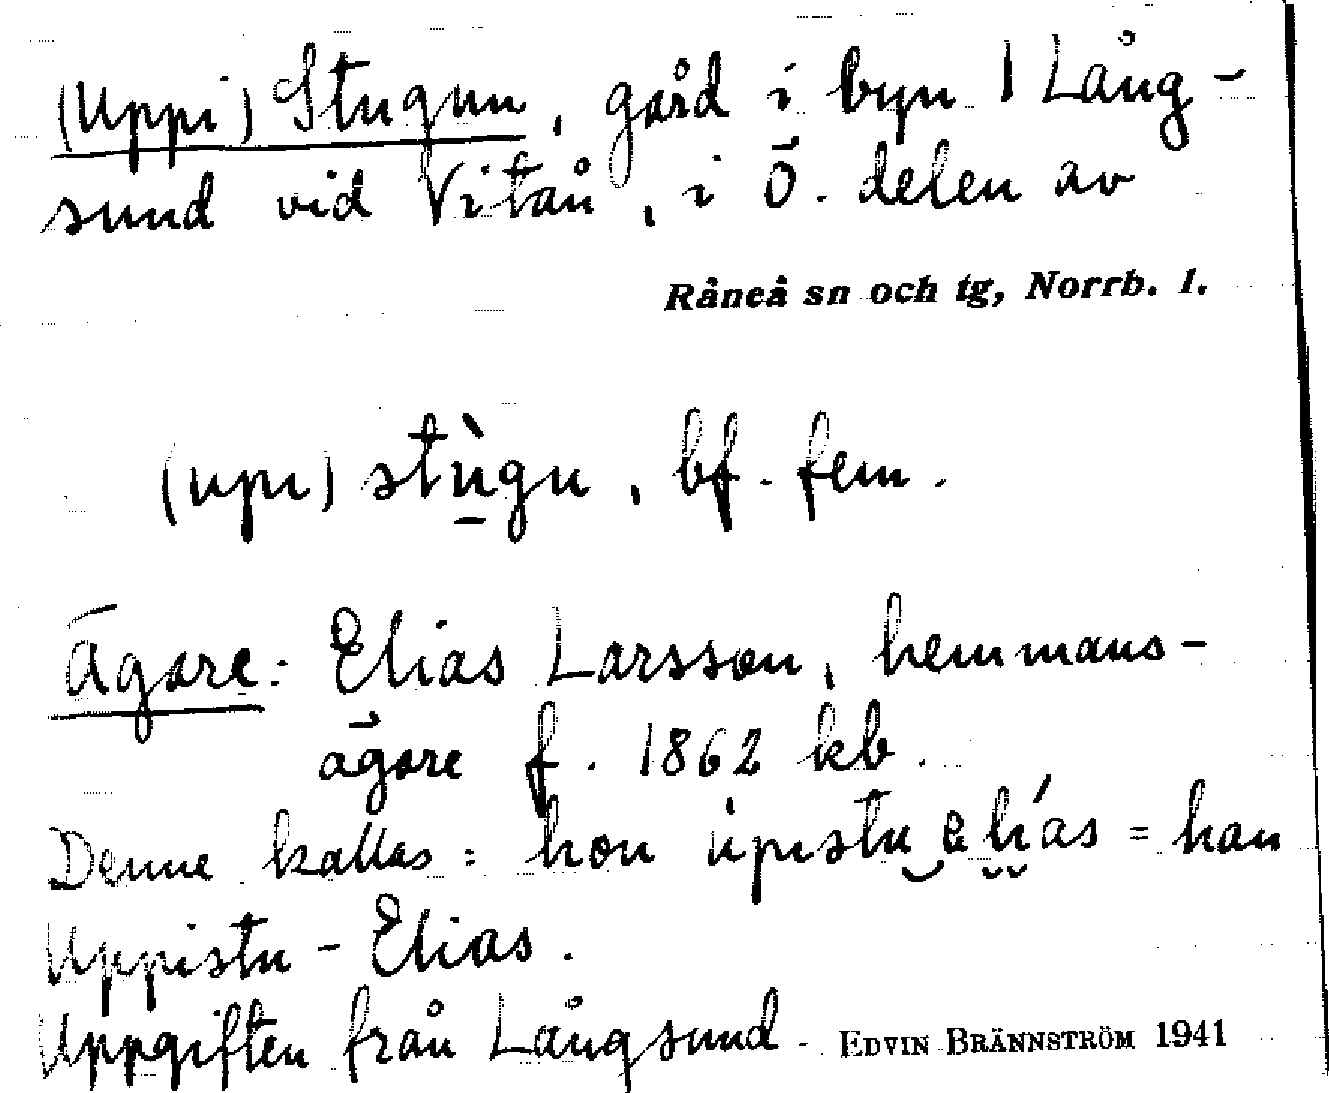 (Uppi) Stugun, gård i byn | Lång-
sund vid Vitån, i Ö. delen av
Råneå sn och tg, Norrb. l.
(upi) stùgu, bf. fem.
Ägare: Elias Larsson, hemmans-
ägare f. 1862 kb.
Denne kallas: hon upistu elías = han
Uppistu-Elias.
Uppgiften från Långsund. EDVIN BRÄNNSTRÖM 1941